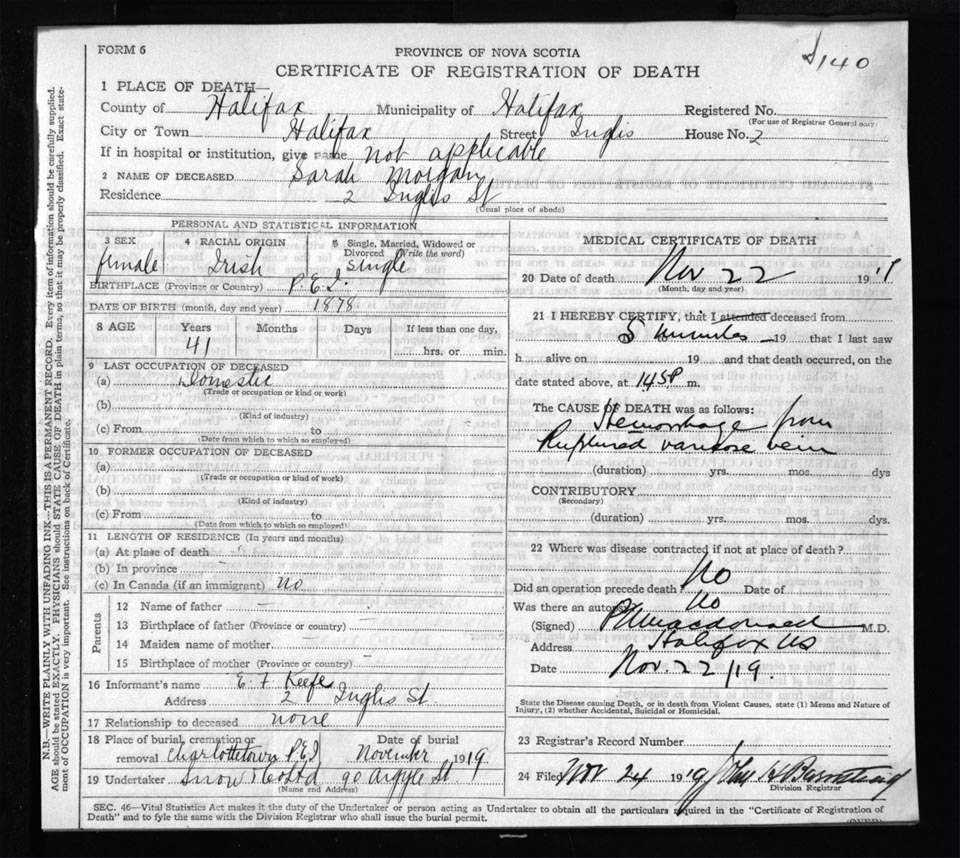 FORM 6
PROVINCE OF NOVA SCOTIA
CERTIFICATE OF REGISTRATION OF DEATH
140
1 PLACE OF DEATH—
County of Halifax Municipality of Halifax Registered No.
(For use of Registrar General only)
City or Town Halifax Street Inglis House No. 2
If in hospital or institution, give name not applicable
2 NAME OF DECEASED Sarah Morgan
Residence 2 Inglis St
(Usual place of abode)
PERSONAL AND STATISTICAL INFORMATION
3 SEX 4 RACIAL ORIGIN 5 Single, Married, Widowed or Divorced (Write the word)
female Irish single
BIRTHPLACE (Province or Country) P.E.I.
DATE OF BIRTH (month, day and year) 1878
8 AGE Years Months Days If less than one day,
41 hrs. or min.
9 LAST OCCUPATION OF DECEASED
(a) Domestic
(Trade or occupation or kind or work)
(b)
(Kind of industry)
(c) From to
(Date from which to which so employed)
10 FORMER OCCUPATION OF DECEASED
(a)
(Trade or occupation or kind of work)
(b)
(Kind of industry)
(c) From to
(Date from which to which so employed)
11 LENGTH OF RESIDENCE (In years and months)
(a) At plase of death
(b) In province
(c) In Canada (if an immigrant) no
Parents
12 Name of father —
13 Birthplace of father (Province or country) —
14 Maiden name of mother —
15 Birthplace of mother (Province or country) —
16 Informant's name E. F. Keefe
Address 2 Inglis St.
17 Relationship to deceased none
18 Place of burial, cremation or removal Date of burial
Charlottetown P.E.I November 1919
19 Undertaker Snow & Co Ltd 90 Argyle St
(Name end Address)
MEDICAL CERTIFICATE OF DEATH
20 Date of death Nov 22 191
(Month, day and year)
21 I HEREBY CERTIFY, that I attended deceased from
5 minutes —19 that I last saw
h alive on 19 and that death occurred, on the
date stated above, at 145P m.
The CAUSE OF DEATH was as follows:
Hemorrhage from
Ruptured varicose vein
(duration) yrs. mos. dys
CONTRIBUTORY
(Secondary)
(duration) yrs. mos. dys.
22 Where was disease contracted if not at place of death?
Did an operation precede death? No Date of
Was there an autopsy No
(Signed) Macdonald M.D.
Address Halifax NS
Date Nov. 22/19.
State the Disease causing Death, or in death from Violent Causes, state (1) Means and Nature of
Injury, (2) whether Accidental, Suicidal or Homicidal.
23 Registrar's Record Number
24 Filed Nov 24 1919 John
Division Registrar
SEC. 46—Vital Statistics Act makes it the duty of the Undertaker or person acting as Undertaker to obtain all the particulars required in the "Certificate of Registration of
Death" and to fyle the same with the Division Registrar who shall issue the burial permit.
(OVER)
N.B.—WRITE PLAINLY WITH UNFADING INK—THIS IS A PERMANENT RECORD. Every item of information should be carefully supplied.
AGE should be stated EXACTLY. PHYSICIANS should STATE CAUSE OF DEATH in plain terms, so that it may be properly classified. Exact state-
ment of OCCUPATION is very important. See instructions on back of Certificate.